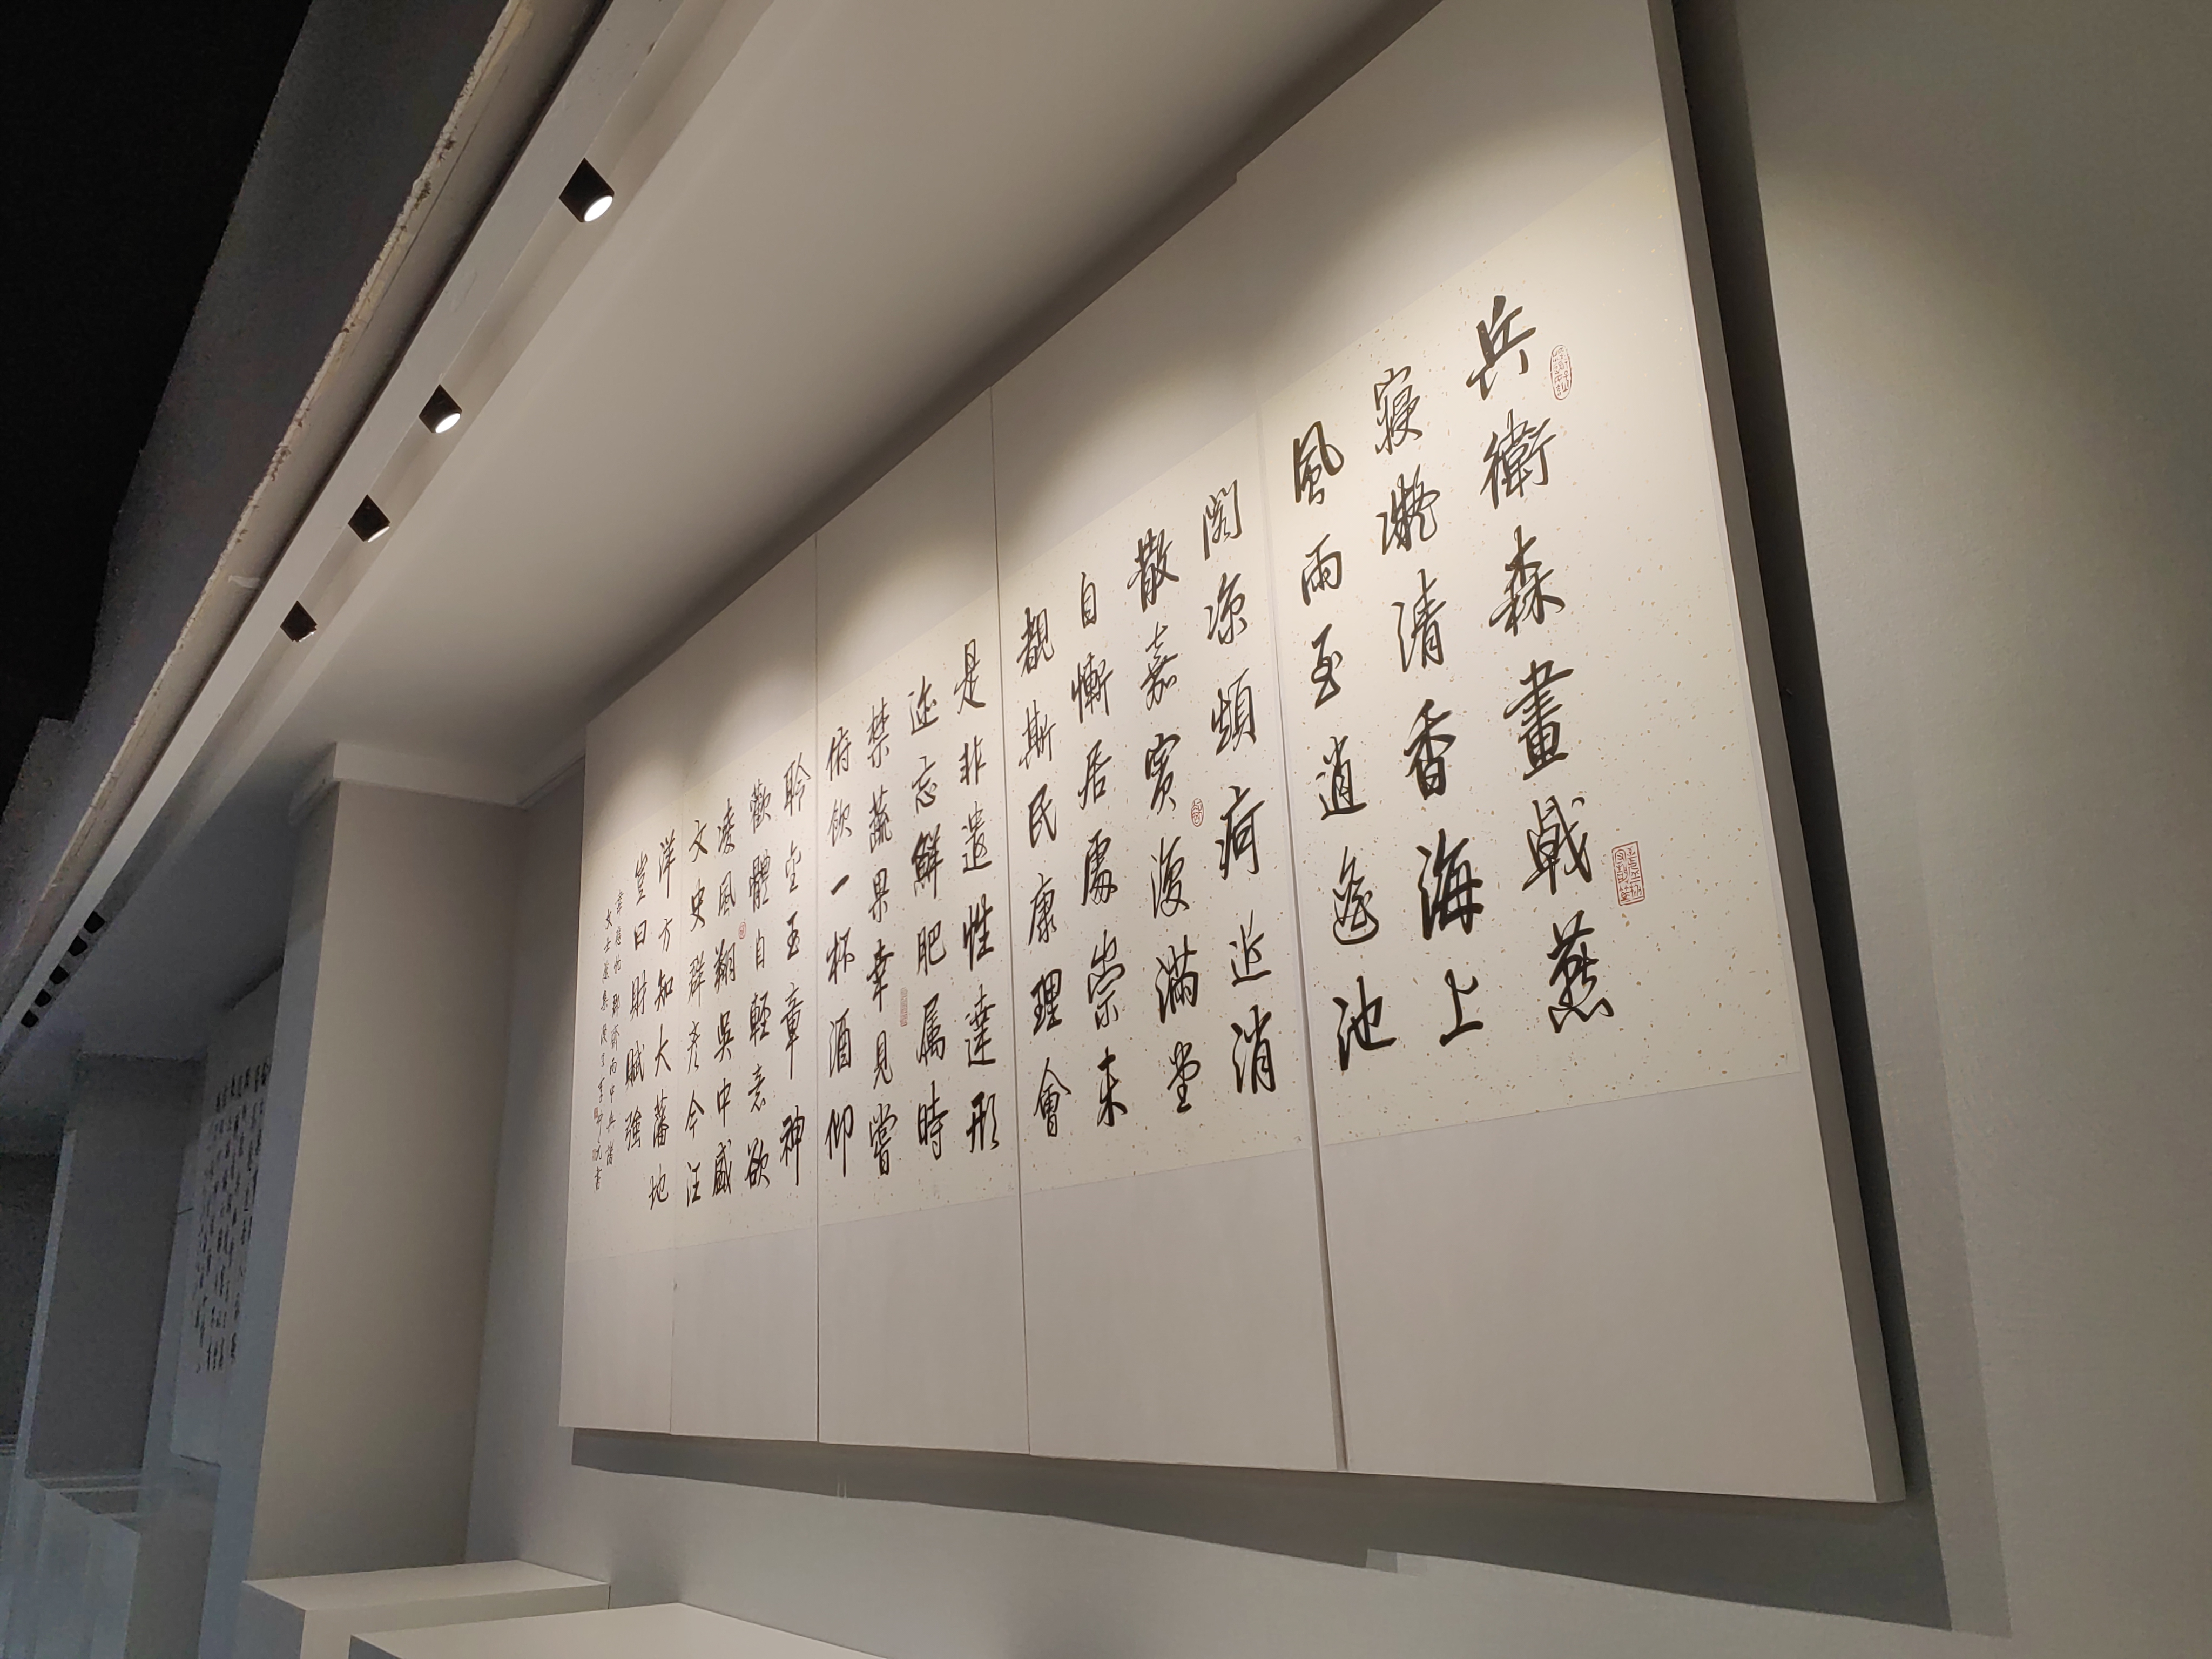 兵衛森畫戟燕
寢凝清香海上
風雨至逍遙池
閣涼煩疴近消
散嘉賓復滿堂
自慚居處崇未
覩斯民康理會
是非遣性達形
迹忘鮮肥属時
禁蔬果幸見嘗
俯飲一杯酒仰
聆金玉章神
歡體自輕意欲
凌風翔吳中盛
文史群彥今汪
洋方知大藩地
豈曰財賦強
韋應物 郡齋雨中与諸
文士燕集